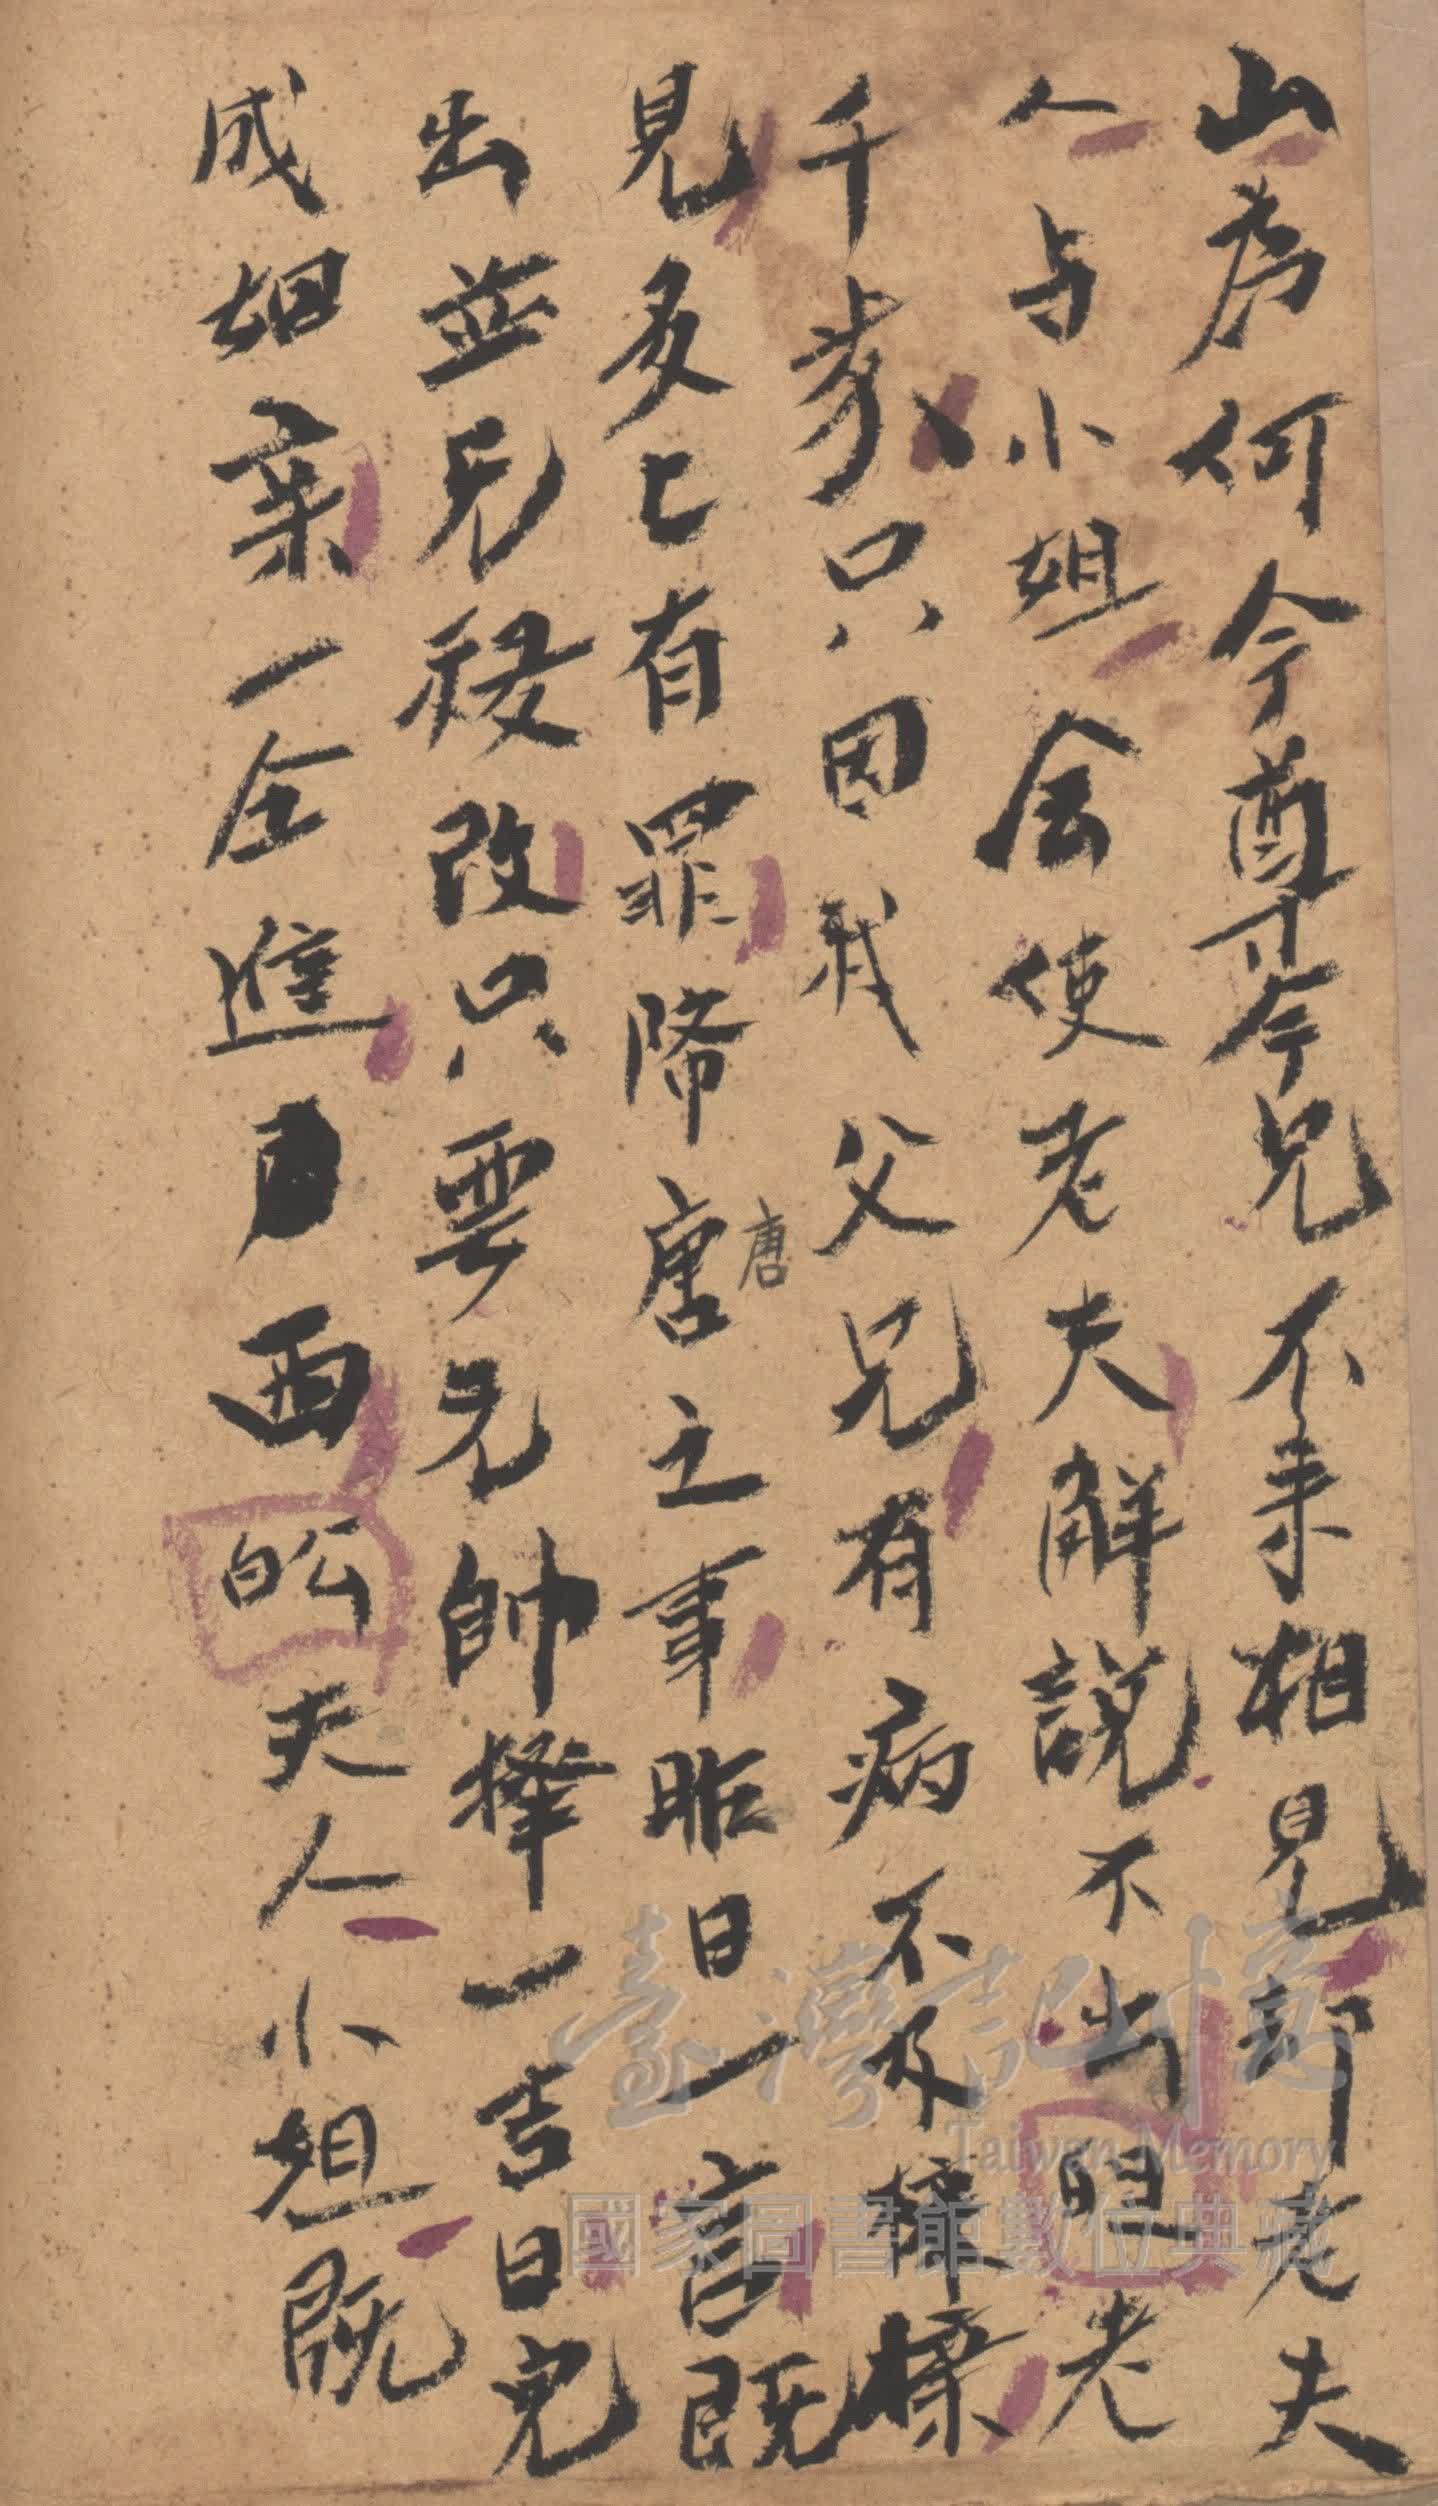 山為何今尊令兄不来相見部老夫
人与小姐会使老夫解説不出明老
千歲只因我父兄有病不及操
見多亡有罪降唐之事昨日一言既
唐
出並无移改只要元帥擇一吉日完
成姻亲一仝進西的夫人小姐既
臺灣記憶
Taiwan Memory
國家圖書館數位典藏